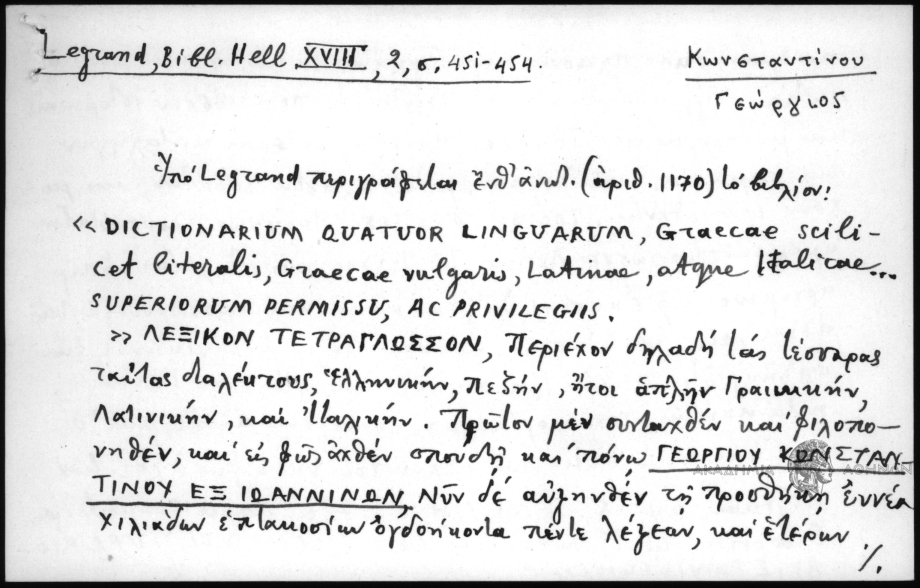 Legrand, Bibl. Hell. XVIII, 2, σ. 451-454.
Κωνσταντίνου
Γεώργιος
Ὑπό Legrand περιγράφεται ἐνθ' ἀνωτ. (ἀριθ. 1170) τό βιβλίον:
«DICTIONARIUM QUATUOR LINGUARUM, Graecae scili-
cet literalis, Graecae vulgaris, Latinae, atque Italicae...
SUPERIORUM PERMISSU, AC PRIVILEGIIS.
» ΛΕΞΙΚΟΝ ΤΕΤΡΑΓΛΩΣΣΟΝ, Περιέχον δηλαδή τάς τέσσαρας
ταύτας διαλέκτους, Ἑλληνικήν, πεζήν, ἤτοι ἁπλῆν Γραικικήν,
Λατινικήν, καί Ἰταλικήν. Πρῶτον μέν συνταχθέν καί φιλοπο-
νηθέν, καί εἰς φῶς ἀχθέν σπουδῇ καί πόνῳ ΓΕΩΡΓΙΟΥ ΚΩΝΣΤΑΝ-
ΤΙΝΟΥ ΕΞ ΙΩΑΝΝΙΝΩΝ, Νῦν δέ αὐξηνθέν τῇ προσθήκῃ ἐννέα
χιλιάδων ἑπτακοσίων ὀγδοήκοντα πέντε λέξεων, καί ἑτέρων
./.
ΑΚΑΔΗΜΙΑ ΑΘΗΝΩΝ